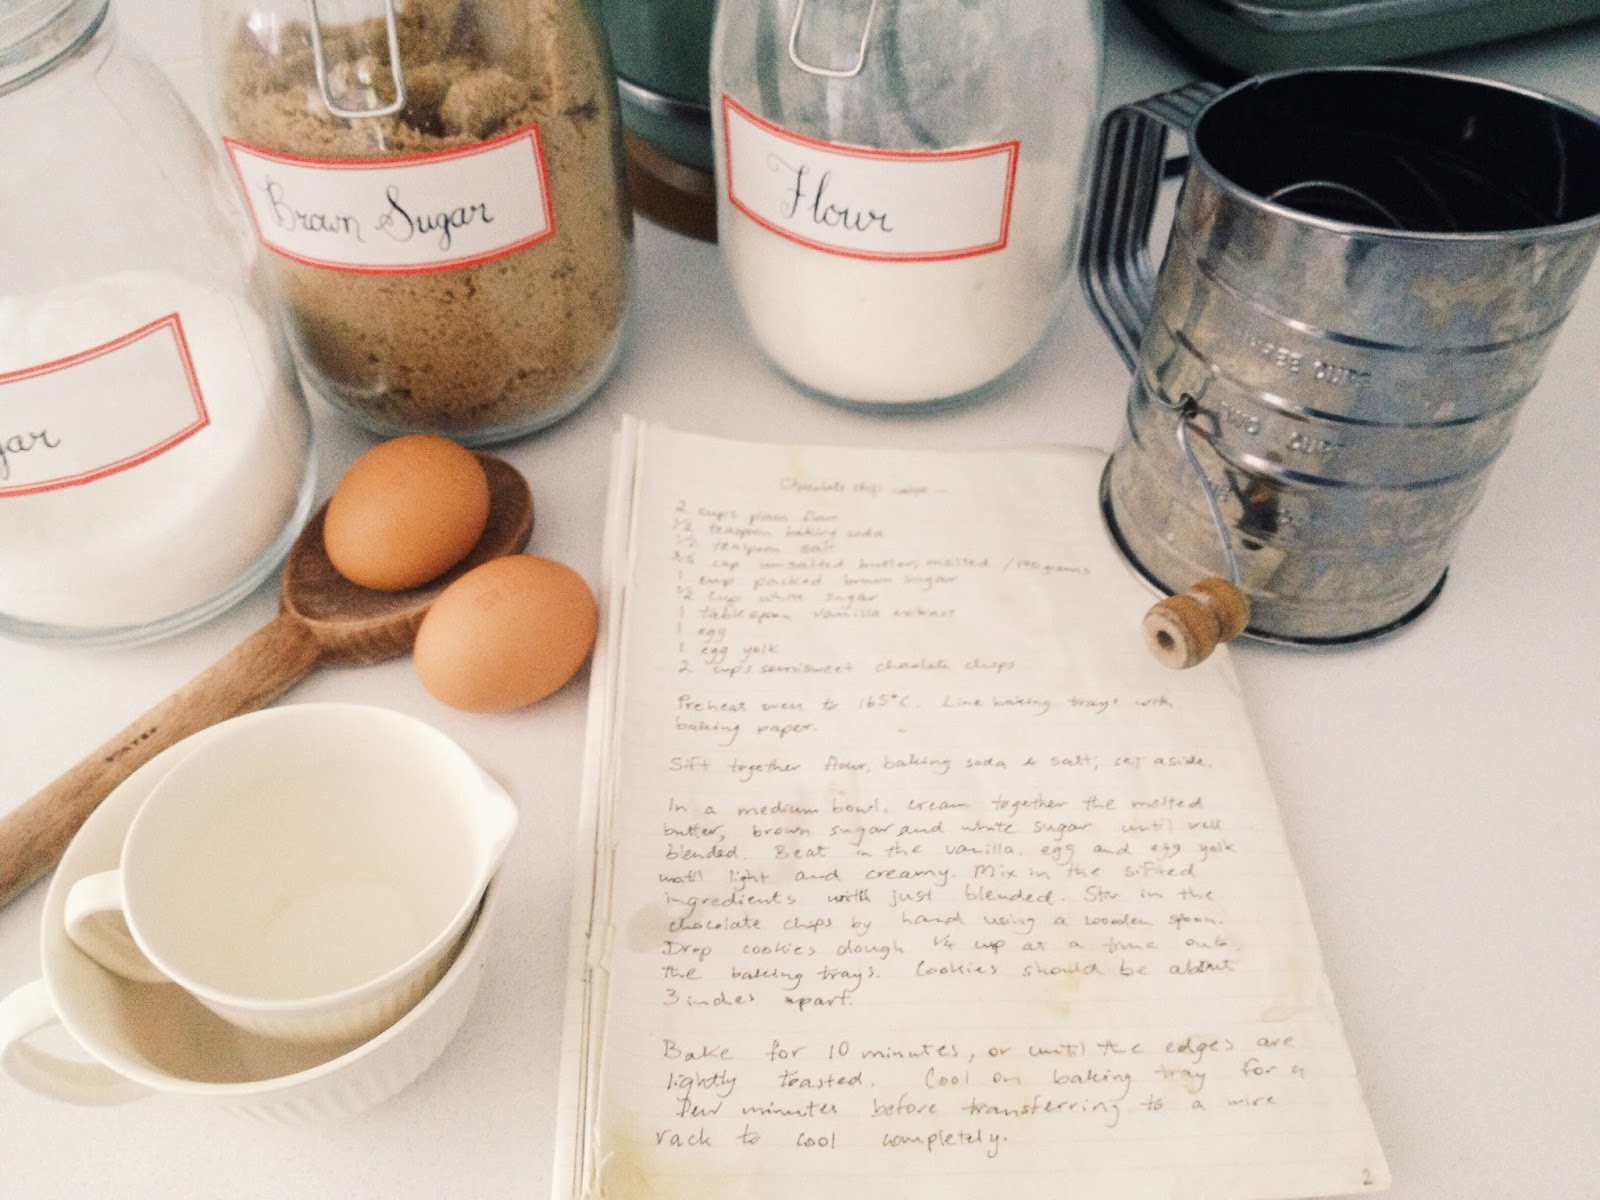 Brown Sugar
Flour
gar
THREE CUPS
TWO CUPS
Chocolate chip
2 cups plain flour
1/2 teaspoon baking soda
1/2 teaspoon salt
cup unsalted butter, melted / 170 grams
1 cup packed brown sugar
1/2 cup white sugar
1 tablespoon vanilla extract
1 egg
1 egg yolk
2 cups semisweet chocolate chips
Preheat oven to 165°C. Line baking trays with
baking paper.
Sift together flour, baking soda & salt; set aside.
In a medium bowl, cream together the melted
butter, brown sugar and white sugar until well
blended. Beat in the vanilla, egg and egg yolk
until light and creamy. Mix in the sifted
ingredients just blended. Stir in the
chocolate chips by hand using a wooden spoon.
Drop cookies dough 1/4 cup at a time
the baking trays. Cookies should be about
3 inches apart.
Bake for 10 minutes, or until the edges are
lightly toasted. Cool on baking tray for a
few minutes before transferring to a wire
rack to cool completely.
2